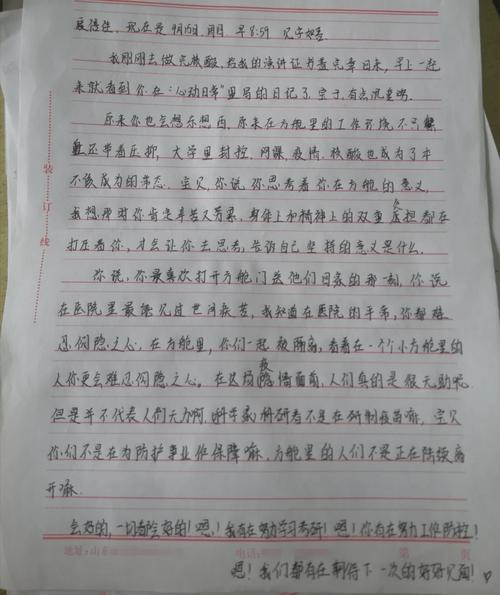 现在是9月15日,周四 早8:59 见字如若
我刚刚去做完核酸,把我的演讲证书盖完章回来,早上一起
来就看到你在:“心动日常”里写的日记了,宝子,有点沉重呢。
原来你也会想东想西,原来在方舱里的工作环境不只
还带着压抑,大学里封控,网课,疫情,核酸也成为了本
不该成为的常态,宝贝,你说你思考着你在方舱的意义,
我想那时你肯定辛苦又劳累,身体上和精神上的双重负担都在
打压着你,才会让你去思考,告诉自己坚持的意义是什么。
你说,你最喜欢打开方舱门送他们回家的那一刻,你说
在医院里最能见过世间疾苦,我知道在医院的平常,你都难
忍恻隐之心,在方舱里,你们一起被隔离,看着在一个个小方舱里的
人你更会难忍恻隐之心。在这场疫情面前,人们真的是很无助呢
但是并不代表人们无力啊,科学家,科研者不是在研制疫苗嘛,宝贝
你们不是在为防护事业作保障嘛,方舱里的人们不是正在陆续离
开嘛。
会好的,一切都会好的!嗯!我有在努力学习考研!嗯!你有在努力工作防控!
地址:山东 电话: 第 页
嗯!我们都有在期待下一次的好好见面!
装
订
线